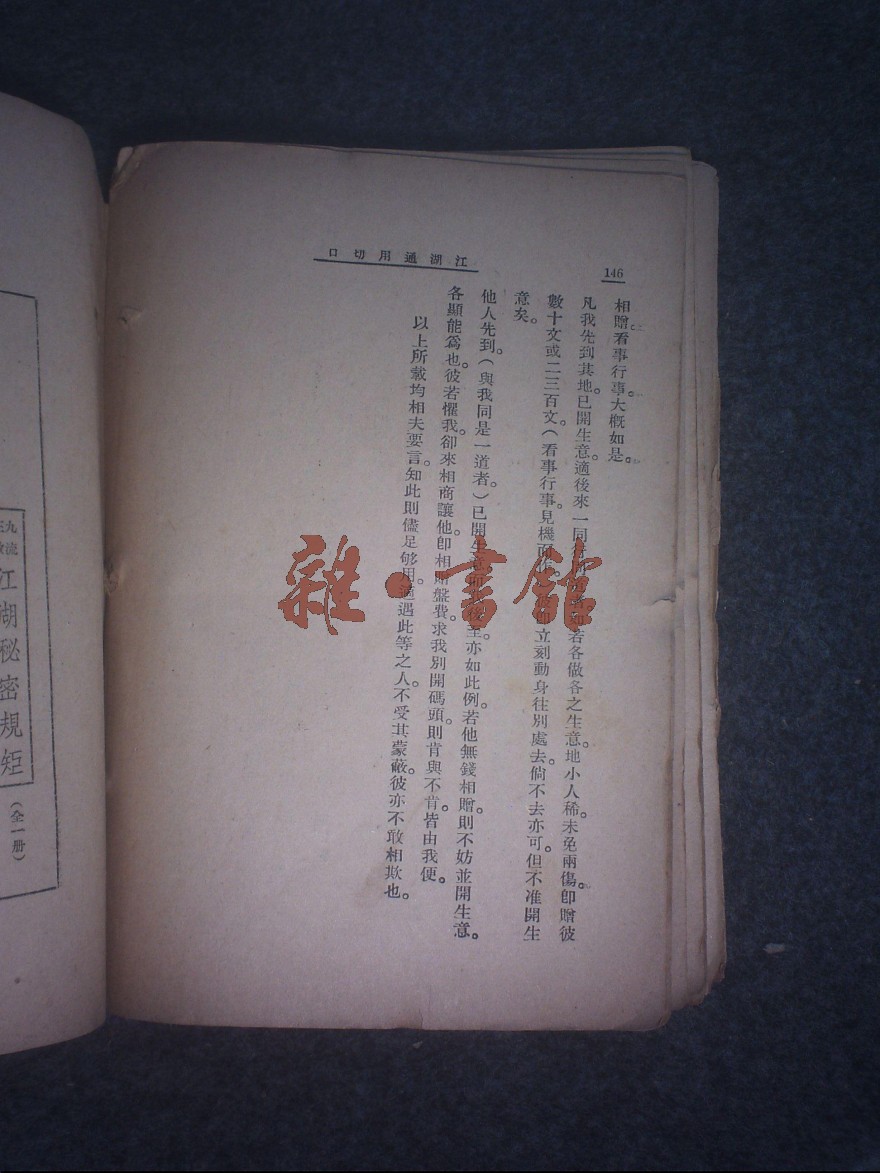 146
江湖通用切口
相贈。看事行事。大概如是。
凡我先到其地。已開生意。適後來一同
若各做各之生意。地小人稀。未免兩傷。卽贈彼
數十文或二三百文(看事行事見機而
立刻動身往別處去。倘不去亦可。但不准開生
意矣。
他人先到。(與我同是一道者。)已開生意。
後至亦如此例。若他無錢相贈。則不妨並開生意。
各顯能爲也。彼若懼我。卻來相商讓他。卽相贈盤費。求我別開碼頭。則肯與不肯。皆由我便。
以上所載均相夫要言。知此則儘足够用。遇此等之人。不受其蒙蔽。彼亦不敢相欺也。
雜·書館
九流
江湖秘密規矩
(全一册)